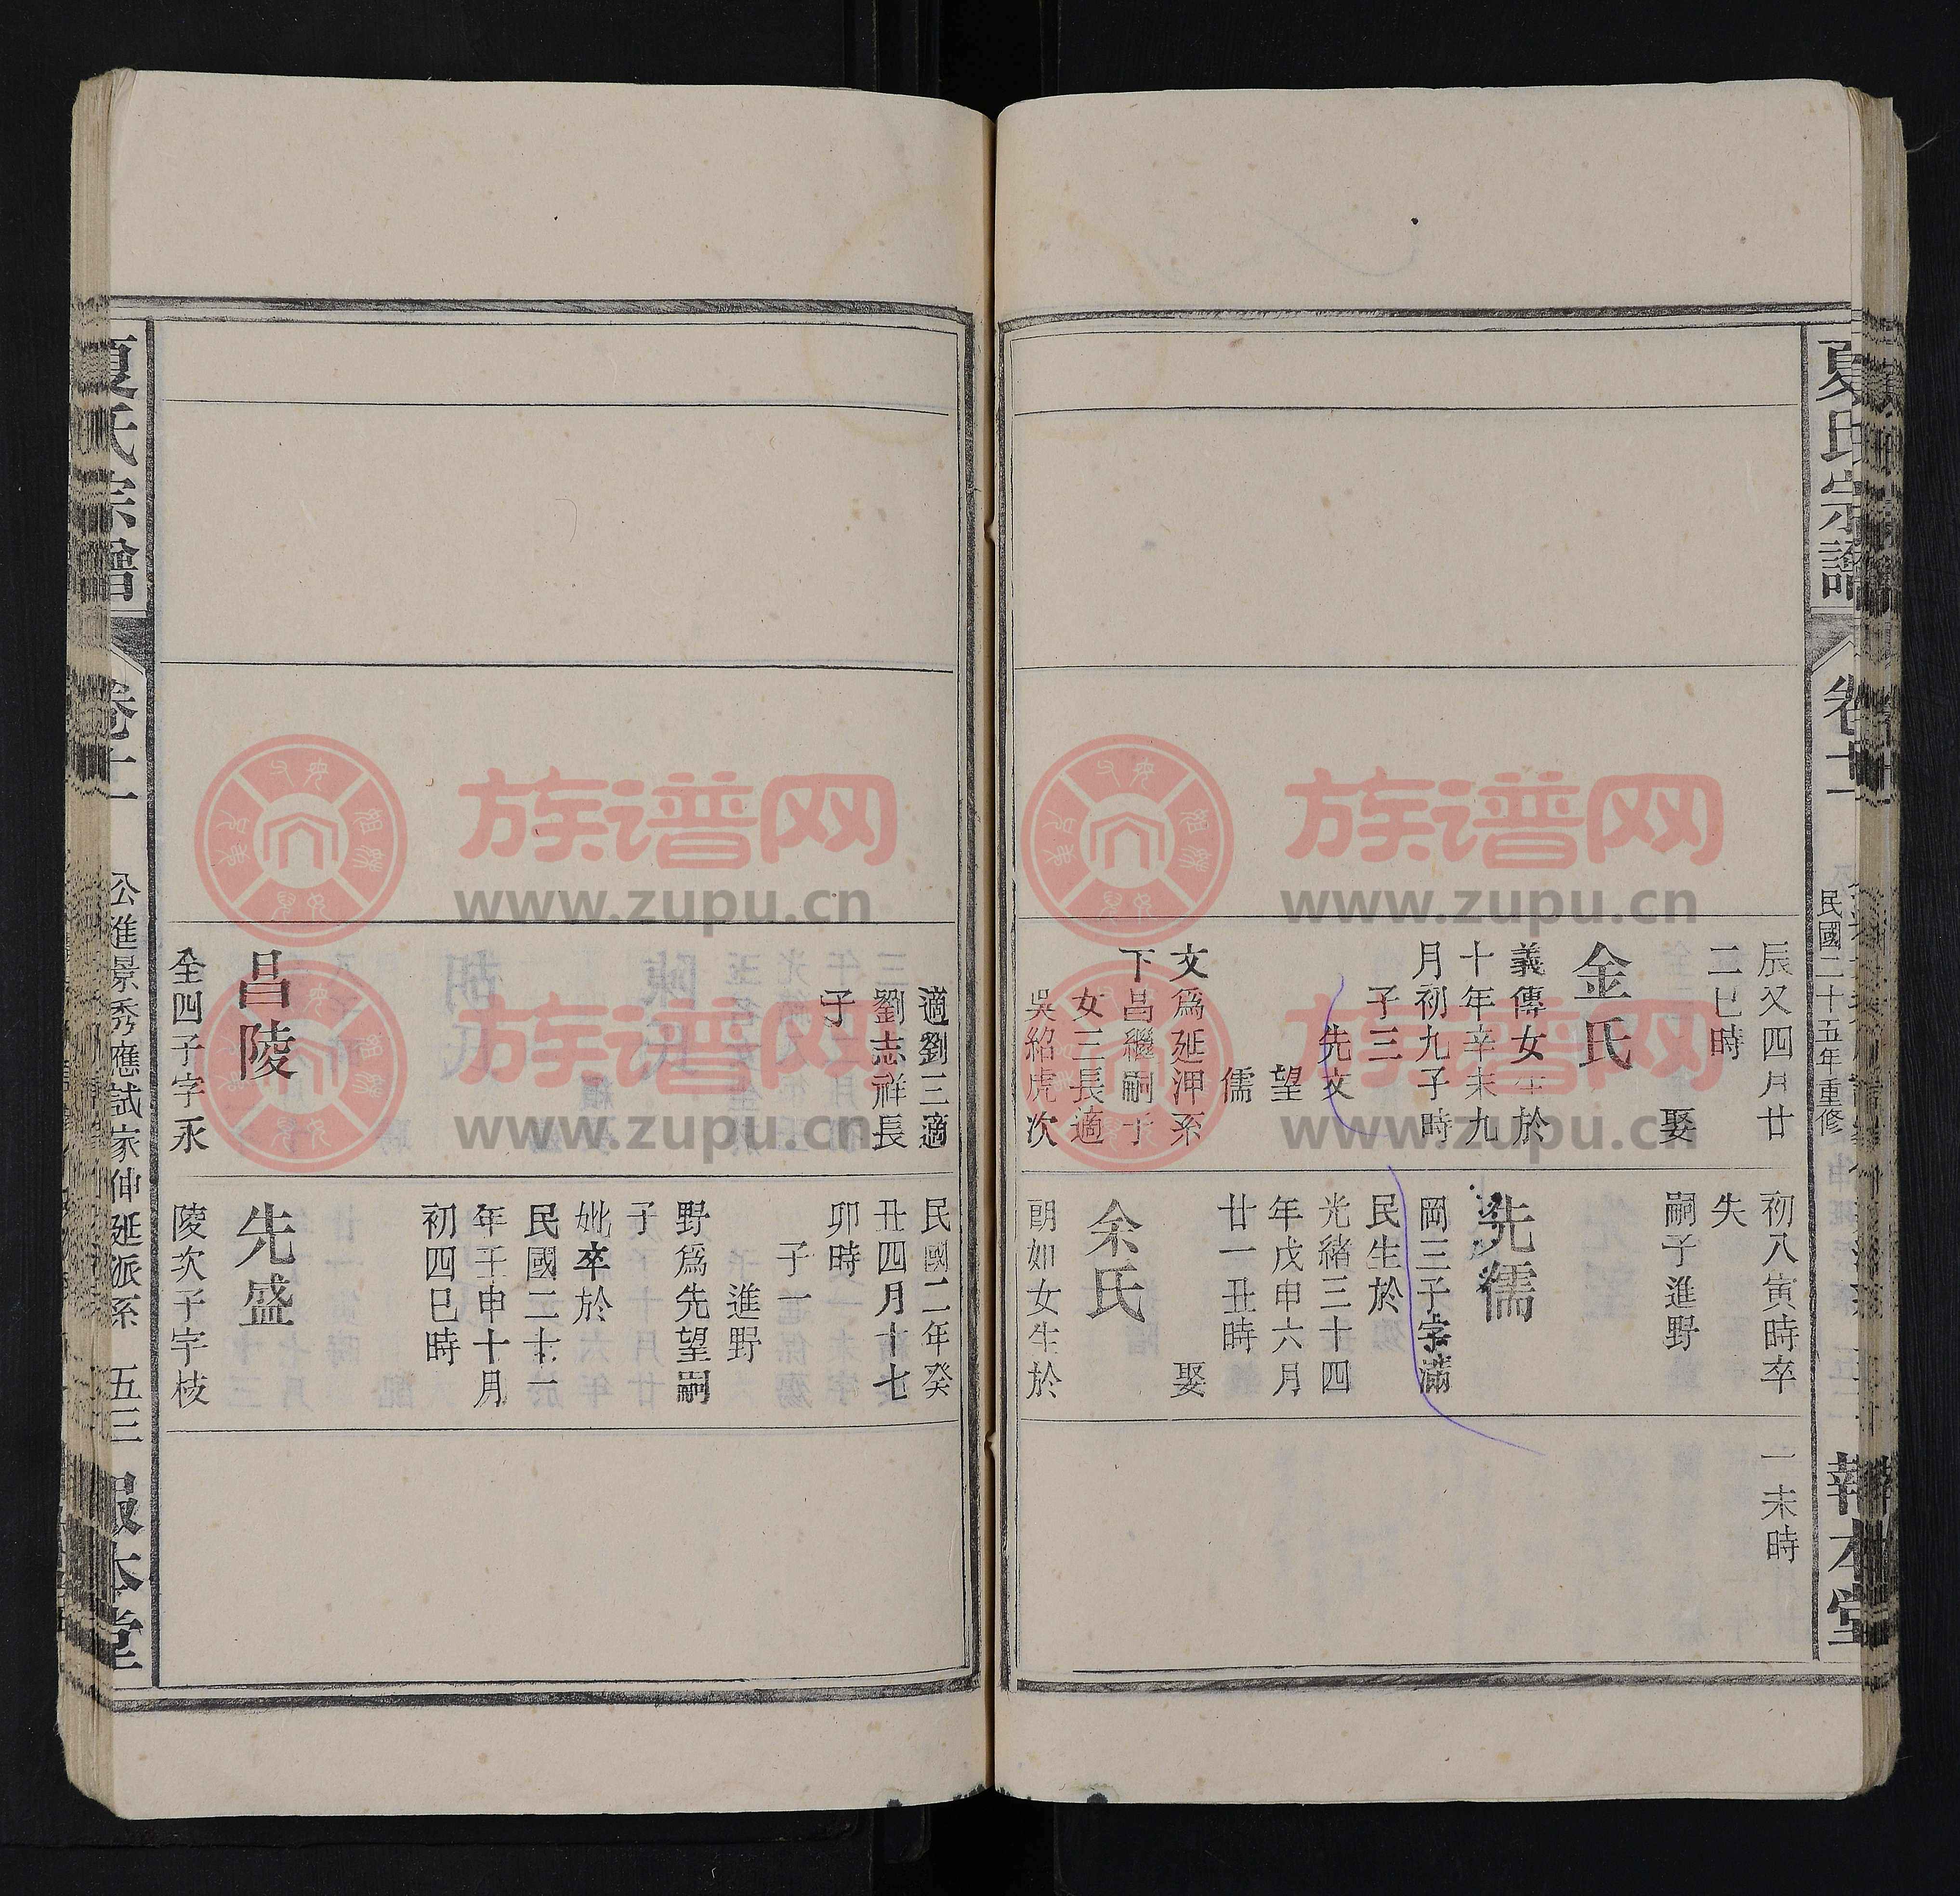 夏氏宗譜
卷十一
民國二十五年重修
報本堂
辰又四月廿
二巳時
娶
金氏
義傳女生於
十年辛未九
月初九子時
子三
先文
望
儒
文爲延洲系
下昌繼嗣于
女三長適
吳紹虎次
初八寅時卒
失
嗣子進野
先儒
岡三子字滿
民生於
光緒三十四
年戊申六月
廿一丑時
娶
余氏
朗如女生於
一未時
適劉三適
劉志祥長
子
昌陵
全四子字永
民國二年癸
丑四月十七
卯時
子一
進野
野爲先望嗣
子
妣卒於
民國二十一
年壬申十月
初四巳時
先盛
陵次子字枝
夏氏宗譜
卷十一
公進景秀應試家仲延派系
五三
報本堂
族谱网
www.zupu.cn
族谱网
www.zupu.cn
族谱网
www.zupu.cn
族谱网
www.zupu.cn